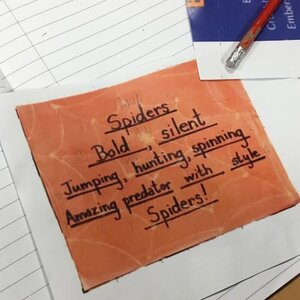 Spiders
Bold, silent
Jumping, hunting, spinning
Amazing predator with style
Spiders!